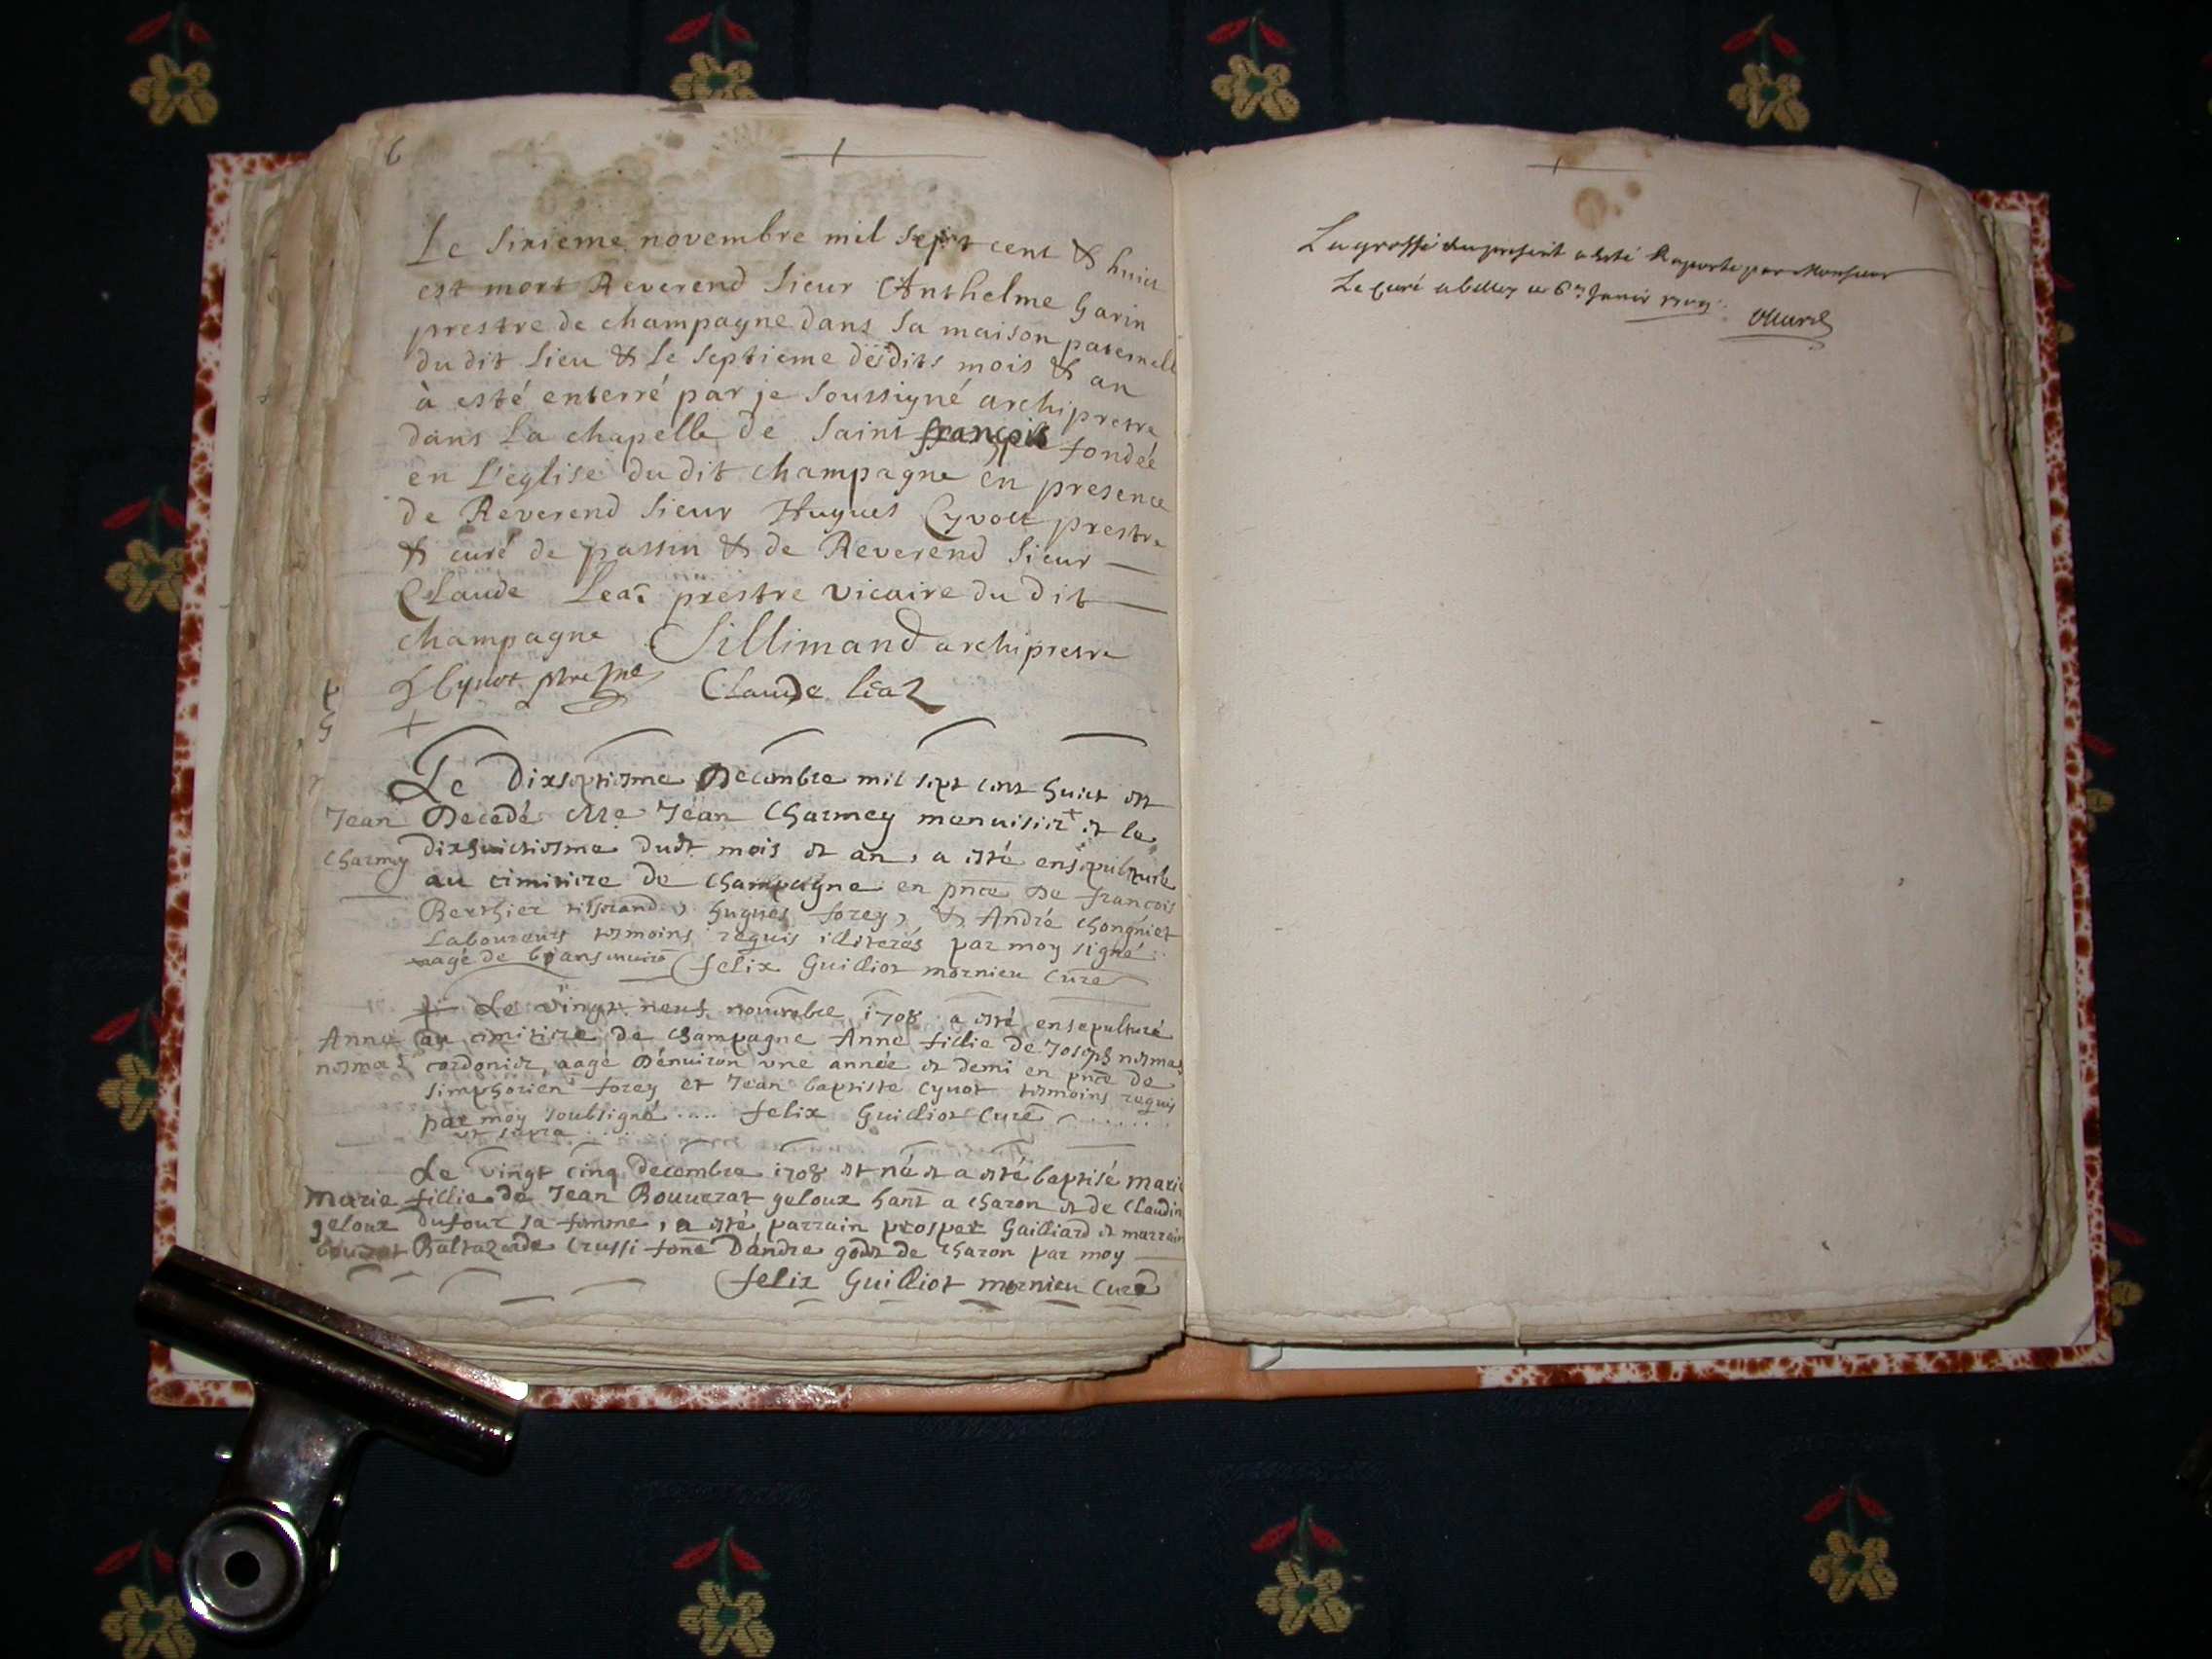 6
Le sixieme novembre mil sept cent & huict
est mort Reverend sieur Anthelme Garin
prestre de champagne dans sa maison paternelle
du dit lieu & le septieme desdits mois & an
à esté enterré par je soussigné archiprestre
dans la chapelle de saint françois fondée
en l'eglise du dit champagne en presence
de Reverend sieur Hugues Cyvoct prestre
& curé de passin & de Reverend sieur
Claude prestre vicaire du dit
champagne Sillimand archiprestre
Claude
Le dixseptiesme Decembre mil sept cent huict est
Jean Decedé Mre Jean Charmey menuisier + et le
Charmey dixhuictiesme dudt mois et an, a esté ensepulturé
au cimitiere de Champagne en pnce De francois
Berthier tisserand, hugues forey, & André Chongniet
Laboureurs tesmoins requis illiterés par moy signé
aagé de ans
felix Guilliot mornieu Curé
Le vingt neuf novembre 1708 a esté ensepulturé
Anne au cimitiere de Champagne Anne fillie de Joseph
cordonier, aagé Denuiron une année et demi en pnce de
simphorien forey et Jean baptiste Cyuot tesmoins requis
par moy soubsigné .... felix Guilliot Curé
ut supra
Le vingt cinq decembre 1708 et né et a esté baptisé Marie
Marie fillie de Jean Bouuerat geloux hant a charon et de Claudin
geloux dufour sa femme, a esté parrain prosper Gailliard et marrain
Baltazarde Crussi fone D'andre godet de charon par moy
felix Guilliot mornieu Curé
7
La grosse du present a esté Raporté par Monsieur
Le curé a belley ce 6me Janvier